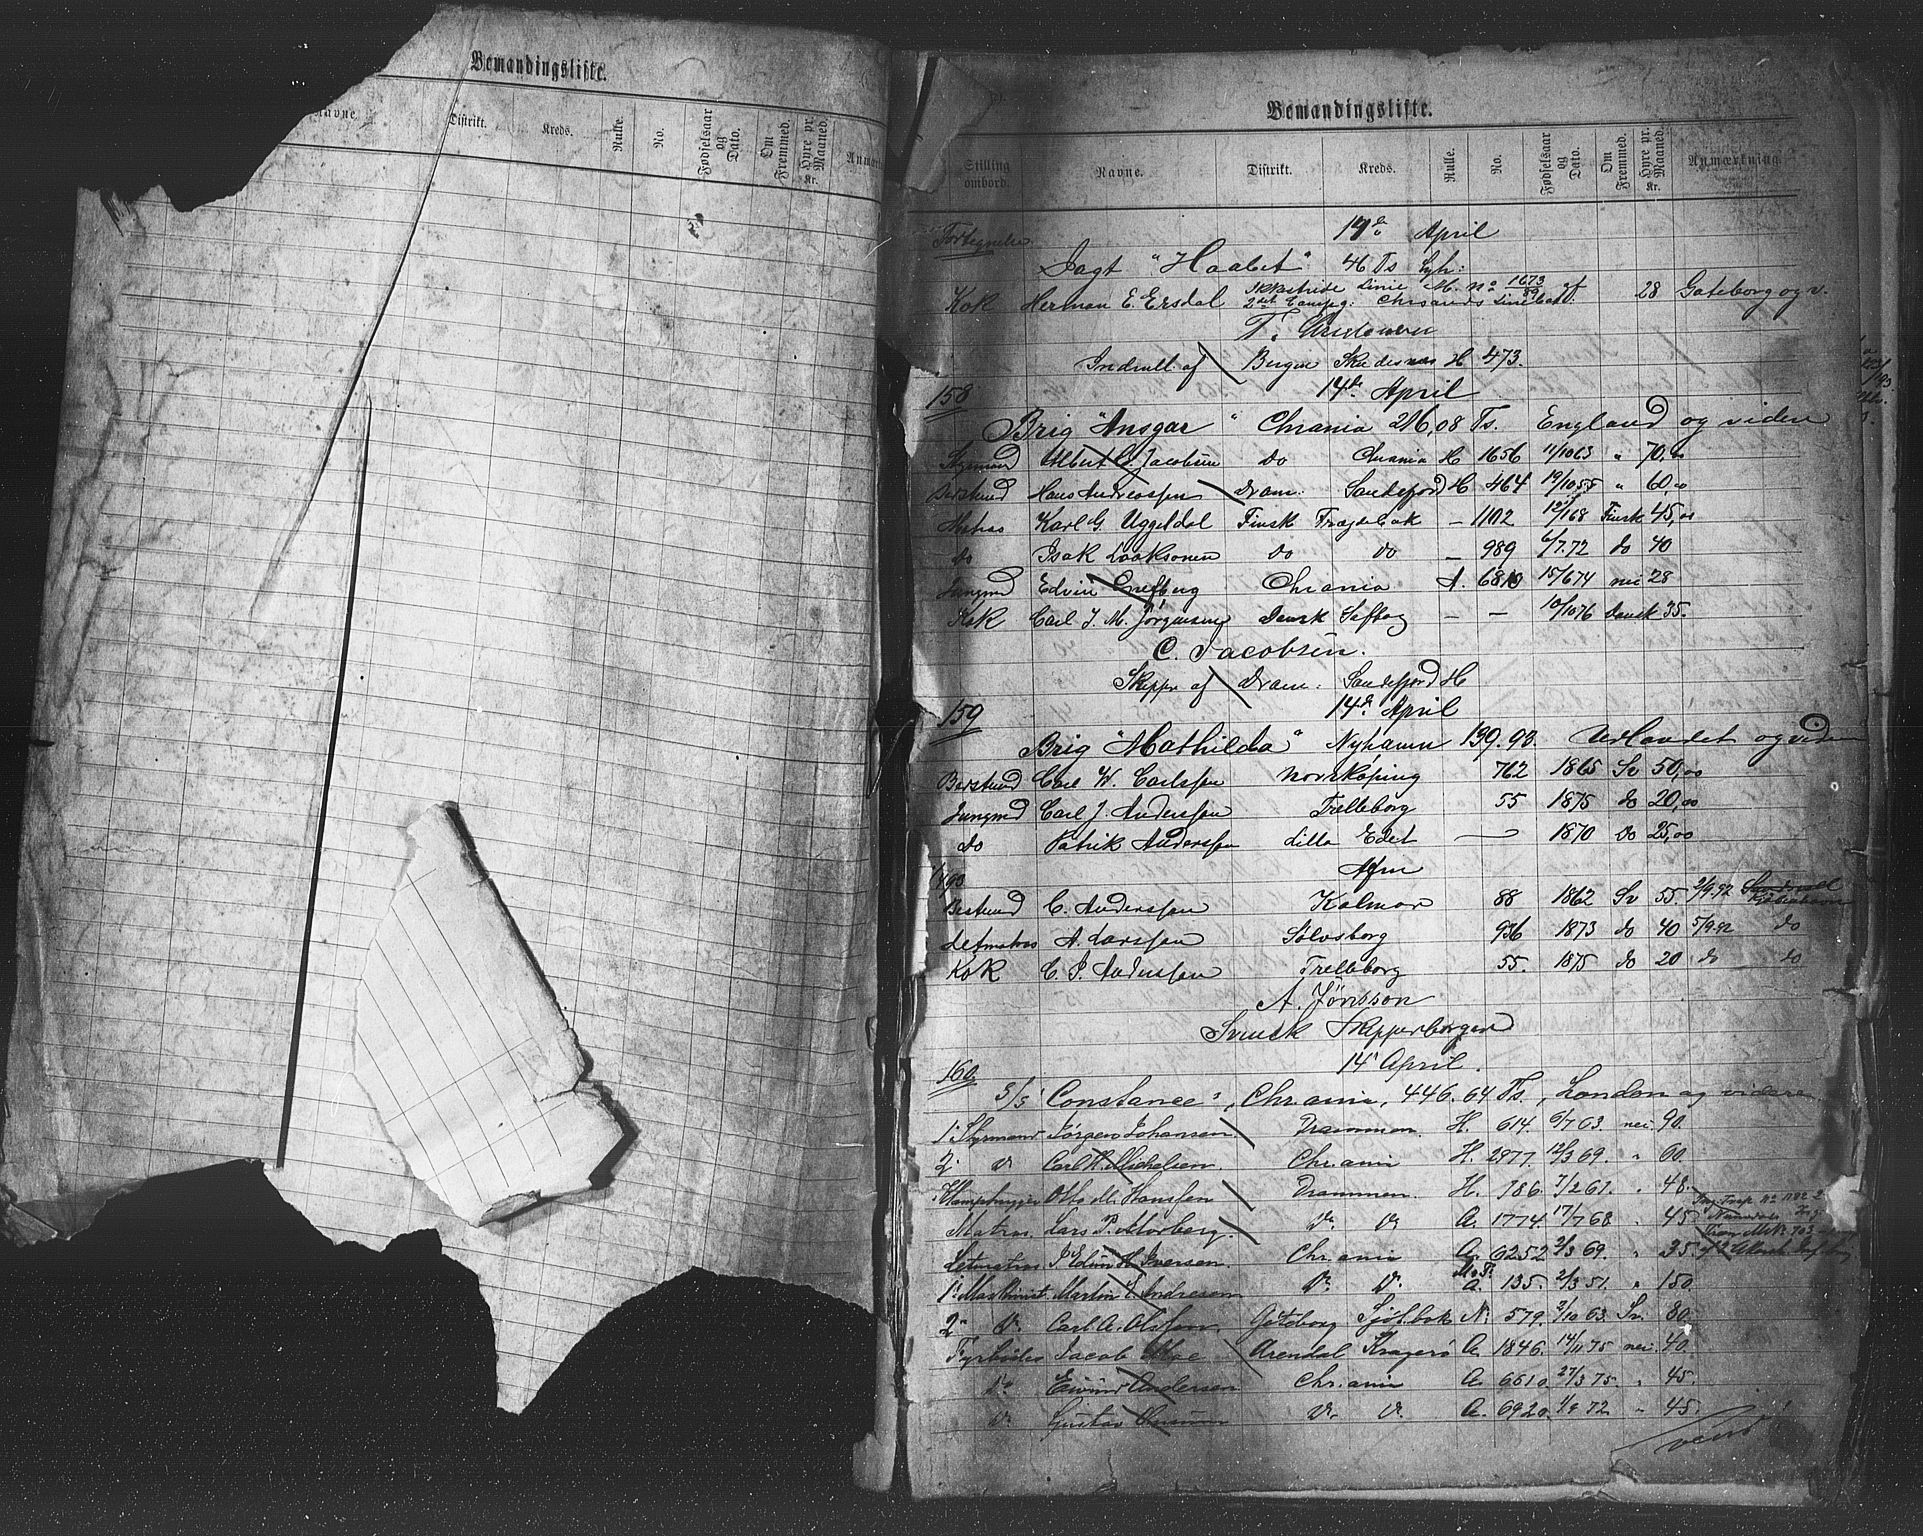 Bemandingsliste.
Navne Distrikt. Kreds. Rulle. No. Fødselsaar og Dato. Om Fremmed. Hyre pr. Maaned. Kr.
Bemandingsliste.
Stilling ombord. Navne. Distrikt. Kreds. Rulle. No. Fødselsaar og Dato. Om Fremmed. Hyre pr. Maaned. Kr. Anmærkning.
Fortegnelse April
Jagt "Haabet" 46 Ts
Kok Herman E. Ersdal Linie M. No 1673/89 af 28 Goteborg og v.
Indrull. af Bergen Skudesnes H 473.
158 14de April
Brig "Ansgar" Chrania 216,08 Ts. England og viden
Styrmand Albert C. Jacobsen do Chrania H 1656 11/10 63 " 70,00
Berstmd Hans Andreassen Dram. Sandefjord H 464 19/10 55 " 60,00
Matros Karl G. Uggeldal Finsk Fragdebok – 1102 12/1 68 Finsk 45,00
do Isak Laaksonen do do – 989 6/7.72 do 40
Jungmd Edvin Engberg Chrania A. 6810 15/6 74 nei 28
Kok Carl J. M. Jørgensen Dansk Søfbog – – 10/10 76 Dansk 35.
C. Jacobsen.
Skipper af Dram. Sandefjord H
159 14de April
Brig "Mathilda" Nyhamn 199.93. Udlandet og viden
Berstmd Carl W. Carlsson Norrköping 762 1865 Sv 50,00
Jungmd Carl J. Andersson Trelleborg 55 1875 do 20,00
do Patrik Andersson Lilla Edet — 1870 do 25,00
Afm
Bestmd C. Andersson Kalmar 88 1862 Sv 55 2/9.92 Sundsvall Kjøbenhavn
Letmatros A. Larsson Sölvsborg 936 1873 do 40 5/9.92 do
Kok C. J. Andersson Trelleborg 55. 1875 do 20 do do
A. Jönsson
Svensk Skepperborger
14' April.
160.
S/S "Constance", Chrania, 446.64 Ts, London og videre
1' Styrmand Jørgen Johansen. Drammen. H. 614. 6/7 63. nei. 90.
2' do Carl H. Michelsen. Chrania H. 2877. 12/3 69. " 60.
Otto M. Hansen Drammen. H. 186. 7/2 61. " 48.
Matros. Lars P. Morberg. do do A. 1774. 17/7 68. " 45
Letmatros J. Edvin H. Iversen. Chrania A. 6252 2/3 69. " 35.
1' Maskinist. Martin E. Andresen do do A. 135. 2/3 51. " 150.
2' do Carl A. Olsson. Göteborg Sjöf.bok N. 579. 2/10 63. Sv. 80.
Fyrbøder Jacob Moe Arendal Kragerø A. 1846. 14/11 75 nei. 40.
do Eivind Andersen Chrania A. 6610. 27/3 75. " 45.
do Gustav do do A. 6920. 1/9 72 " 45.
vend